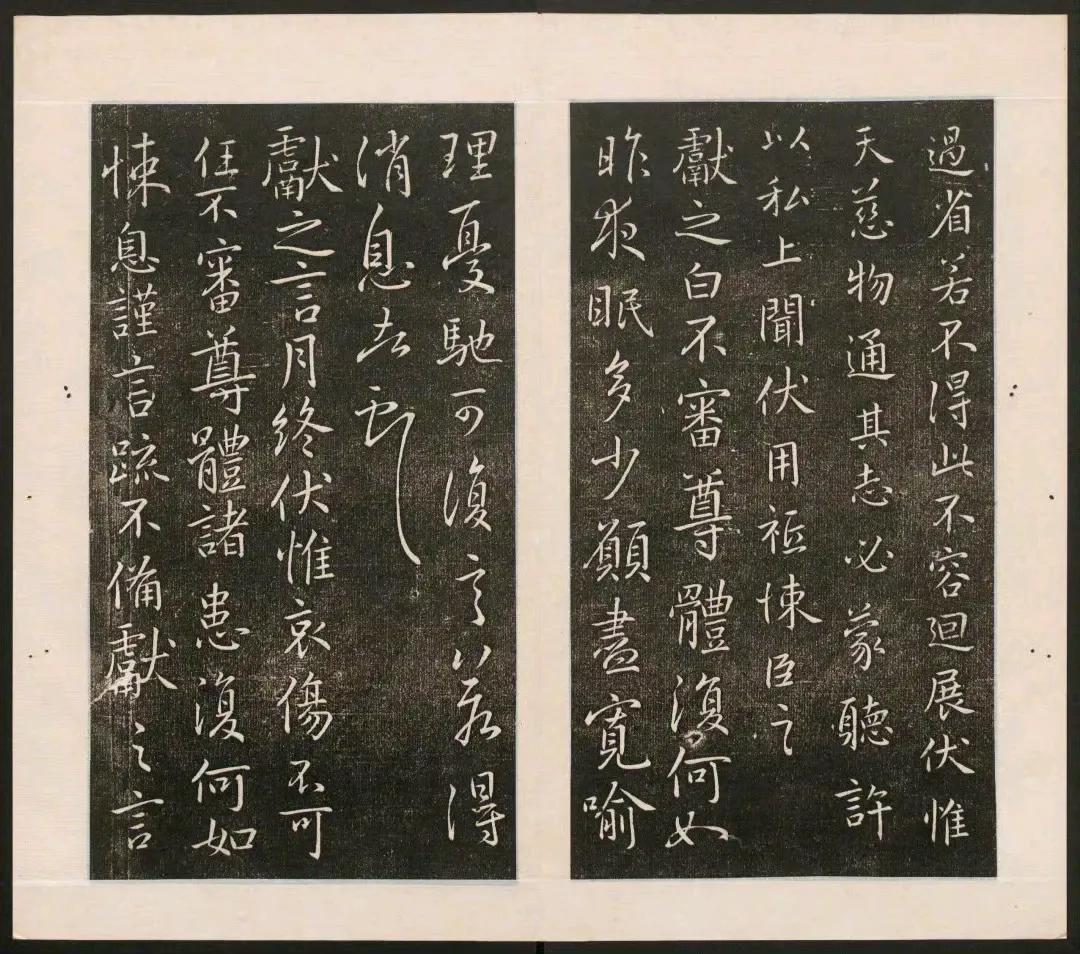 過省若不得此不容迴展伏惟
天慈物通其志必蒙聽許
以私上聞伏用祗悚臣之
獻之白不審尊體復何如
昨夜眠多少願盡寬喻
理憂馳可復言八美得
消息去
獻之言月終伏惟哀傷不可
任不審尊體諸患復何如
悚息謹言疏不備獻之言